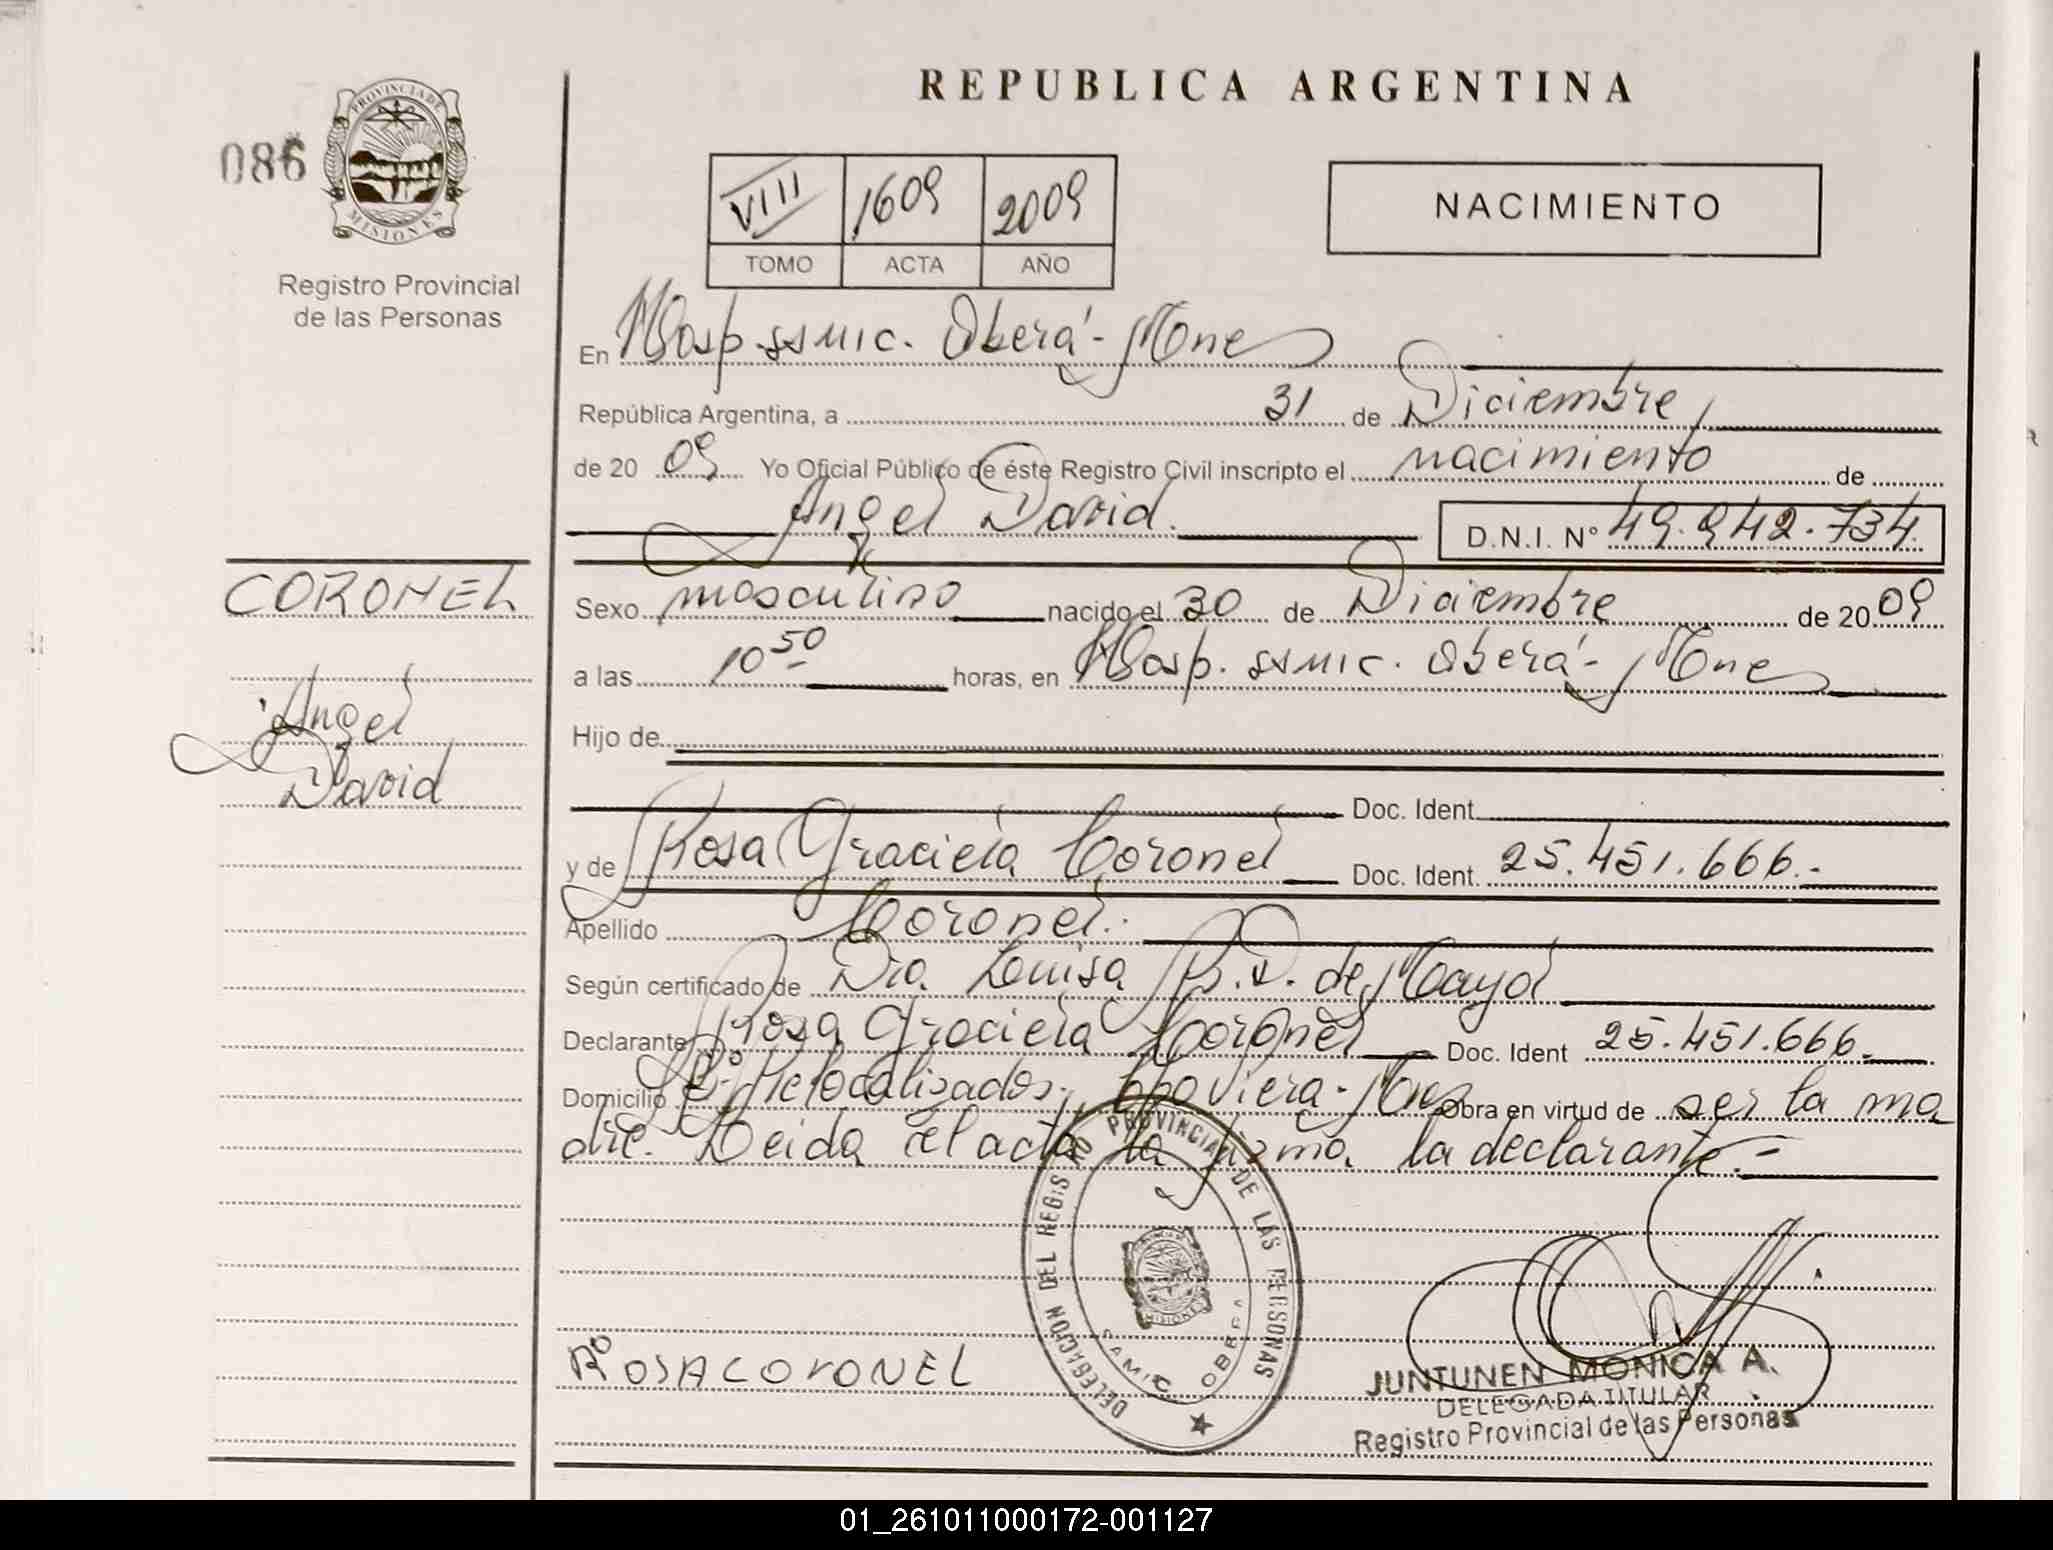 REPUBLICA ARGENTINA
086
PROVINCIA DE
MISIONES
Registro Provincial
de las Personas
VIII 1609 2009
TOMO ACTA AÑO
NACIMIENTO
En Hosp. SSMIC. Oberá - Mnes
República Argentina, a 31 de Diciembre
de 20 09 Yo Oficial Público de éste Registro Civil inscripto el nacimiento de
Angel David. D.N.I. N° 49.942.734.
CORONEL
Angel
David
Sexo masculino nacido el 30 de Diciembre de 20 09
a las 10 50 horas, en Hosp. SSMIC. Oberá - Mnes
Hijo de
Doc. Ident.
y de Rosa Graciela Coronel Doc. Ident. 25.451.666.-
Apellido Coronel.
Según certificado de Dra. Luisa de
Declarante Rosa Graciela Coronel Doc. Ident 25.451.666.
Domicilio Bº Relocalizados. Mnes Obra en virtud de ser la ma
dre. Leida el acta la firma la declarante.-
DELEGACION DEL REGISTRO PROVINCIAL DE LAS PERSONAS
MISIONES
SAMIC OBERA
ROSA CORONEL
JUNTUNEN MONICA A.
DELEGADA TITULAR
Registro Provincial de las Personas
01_261011000172-001127